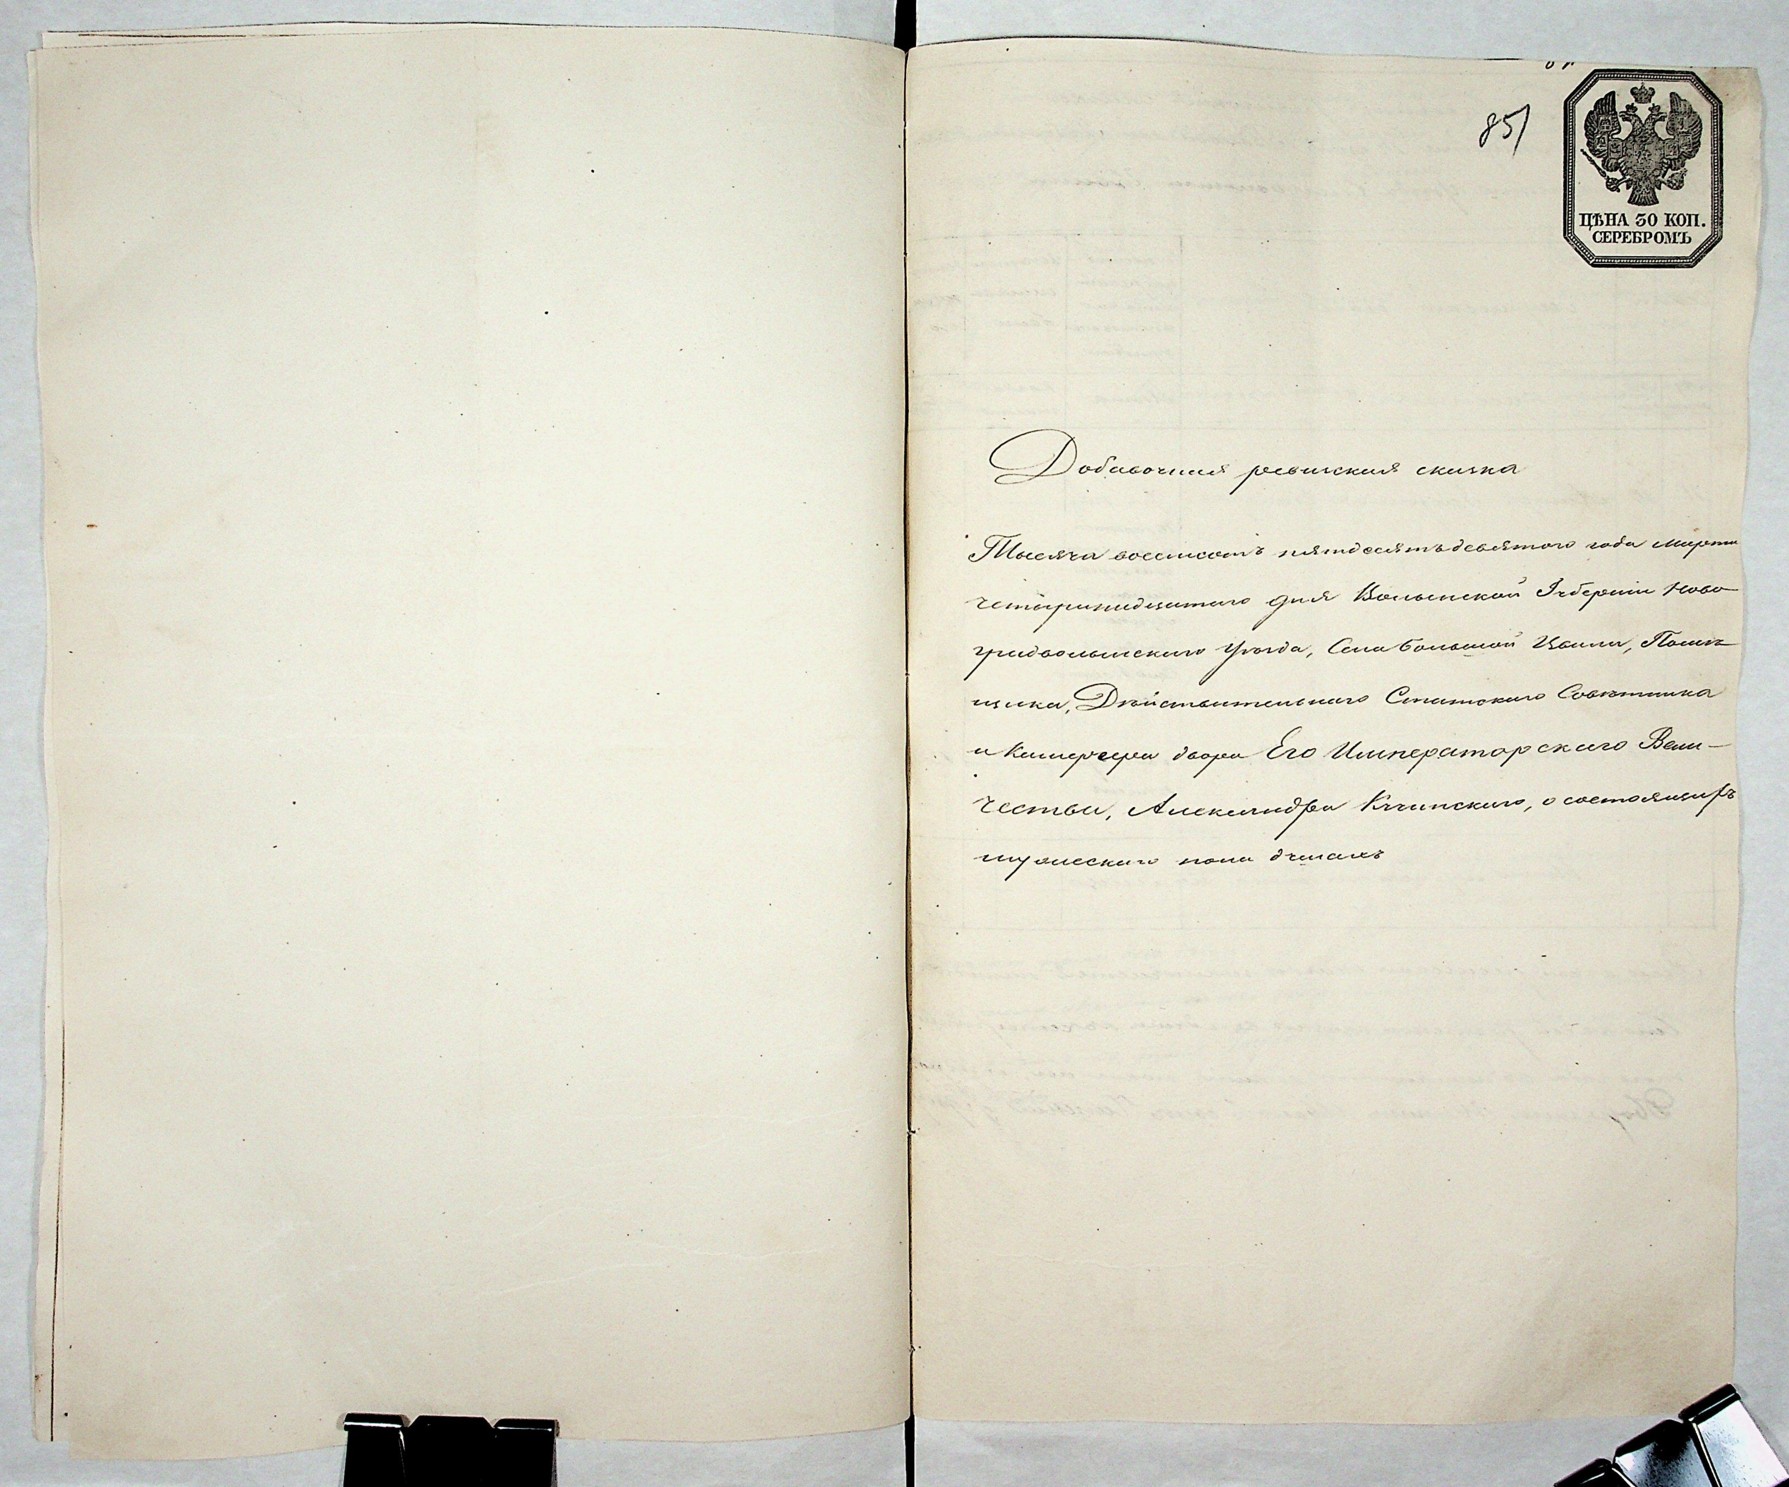 85
ЦѢНА 30 КОП.
СЕРЕБРОМЪ
Добавочная ревизская сказка
Тысяча восемсотъ пятдесятъ девятого года Марта
четырнадцатаго дня Волынской Губерніи Ново-
градволынскаго Уѣзда, Села Большой Цвили, Помѣ-
щика, Дѣйствительнаго Статскаго Совѣтника
и Камергера двора Его Императорскаго Вели-
чества, Александра о состоящихъ
мужескаго пола душахъ